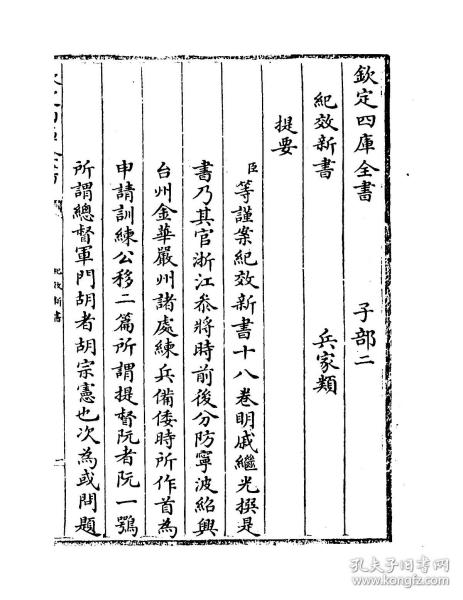 欽定四庫全書　子部二
紀效新書　兵家類
提要
臣等謹案紀效新書十八卷明戚繼光撰是
書乃其官浙江叅將時前後分防寧波紹興
台州金華嚴州諸處練兵備倭時所作首為
申請訓練公移二篇所謂提督阮者阮一鶚
所謂總督軍門胡者胡宗憲也次為或問題
紀效新書
一
孔夫子旧书网